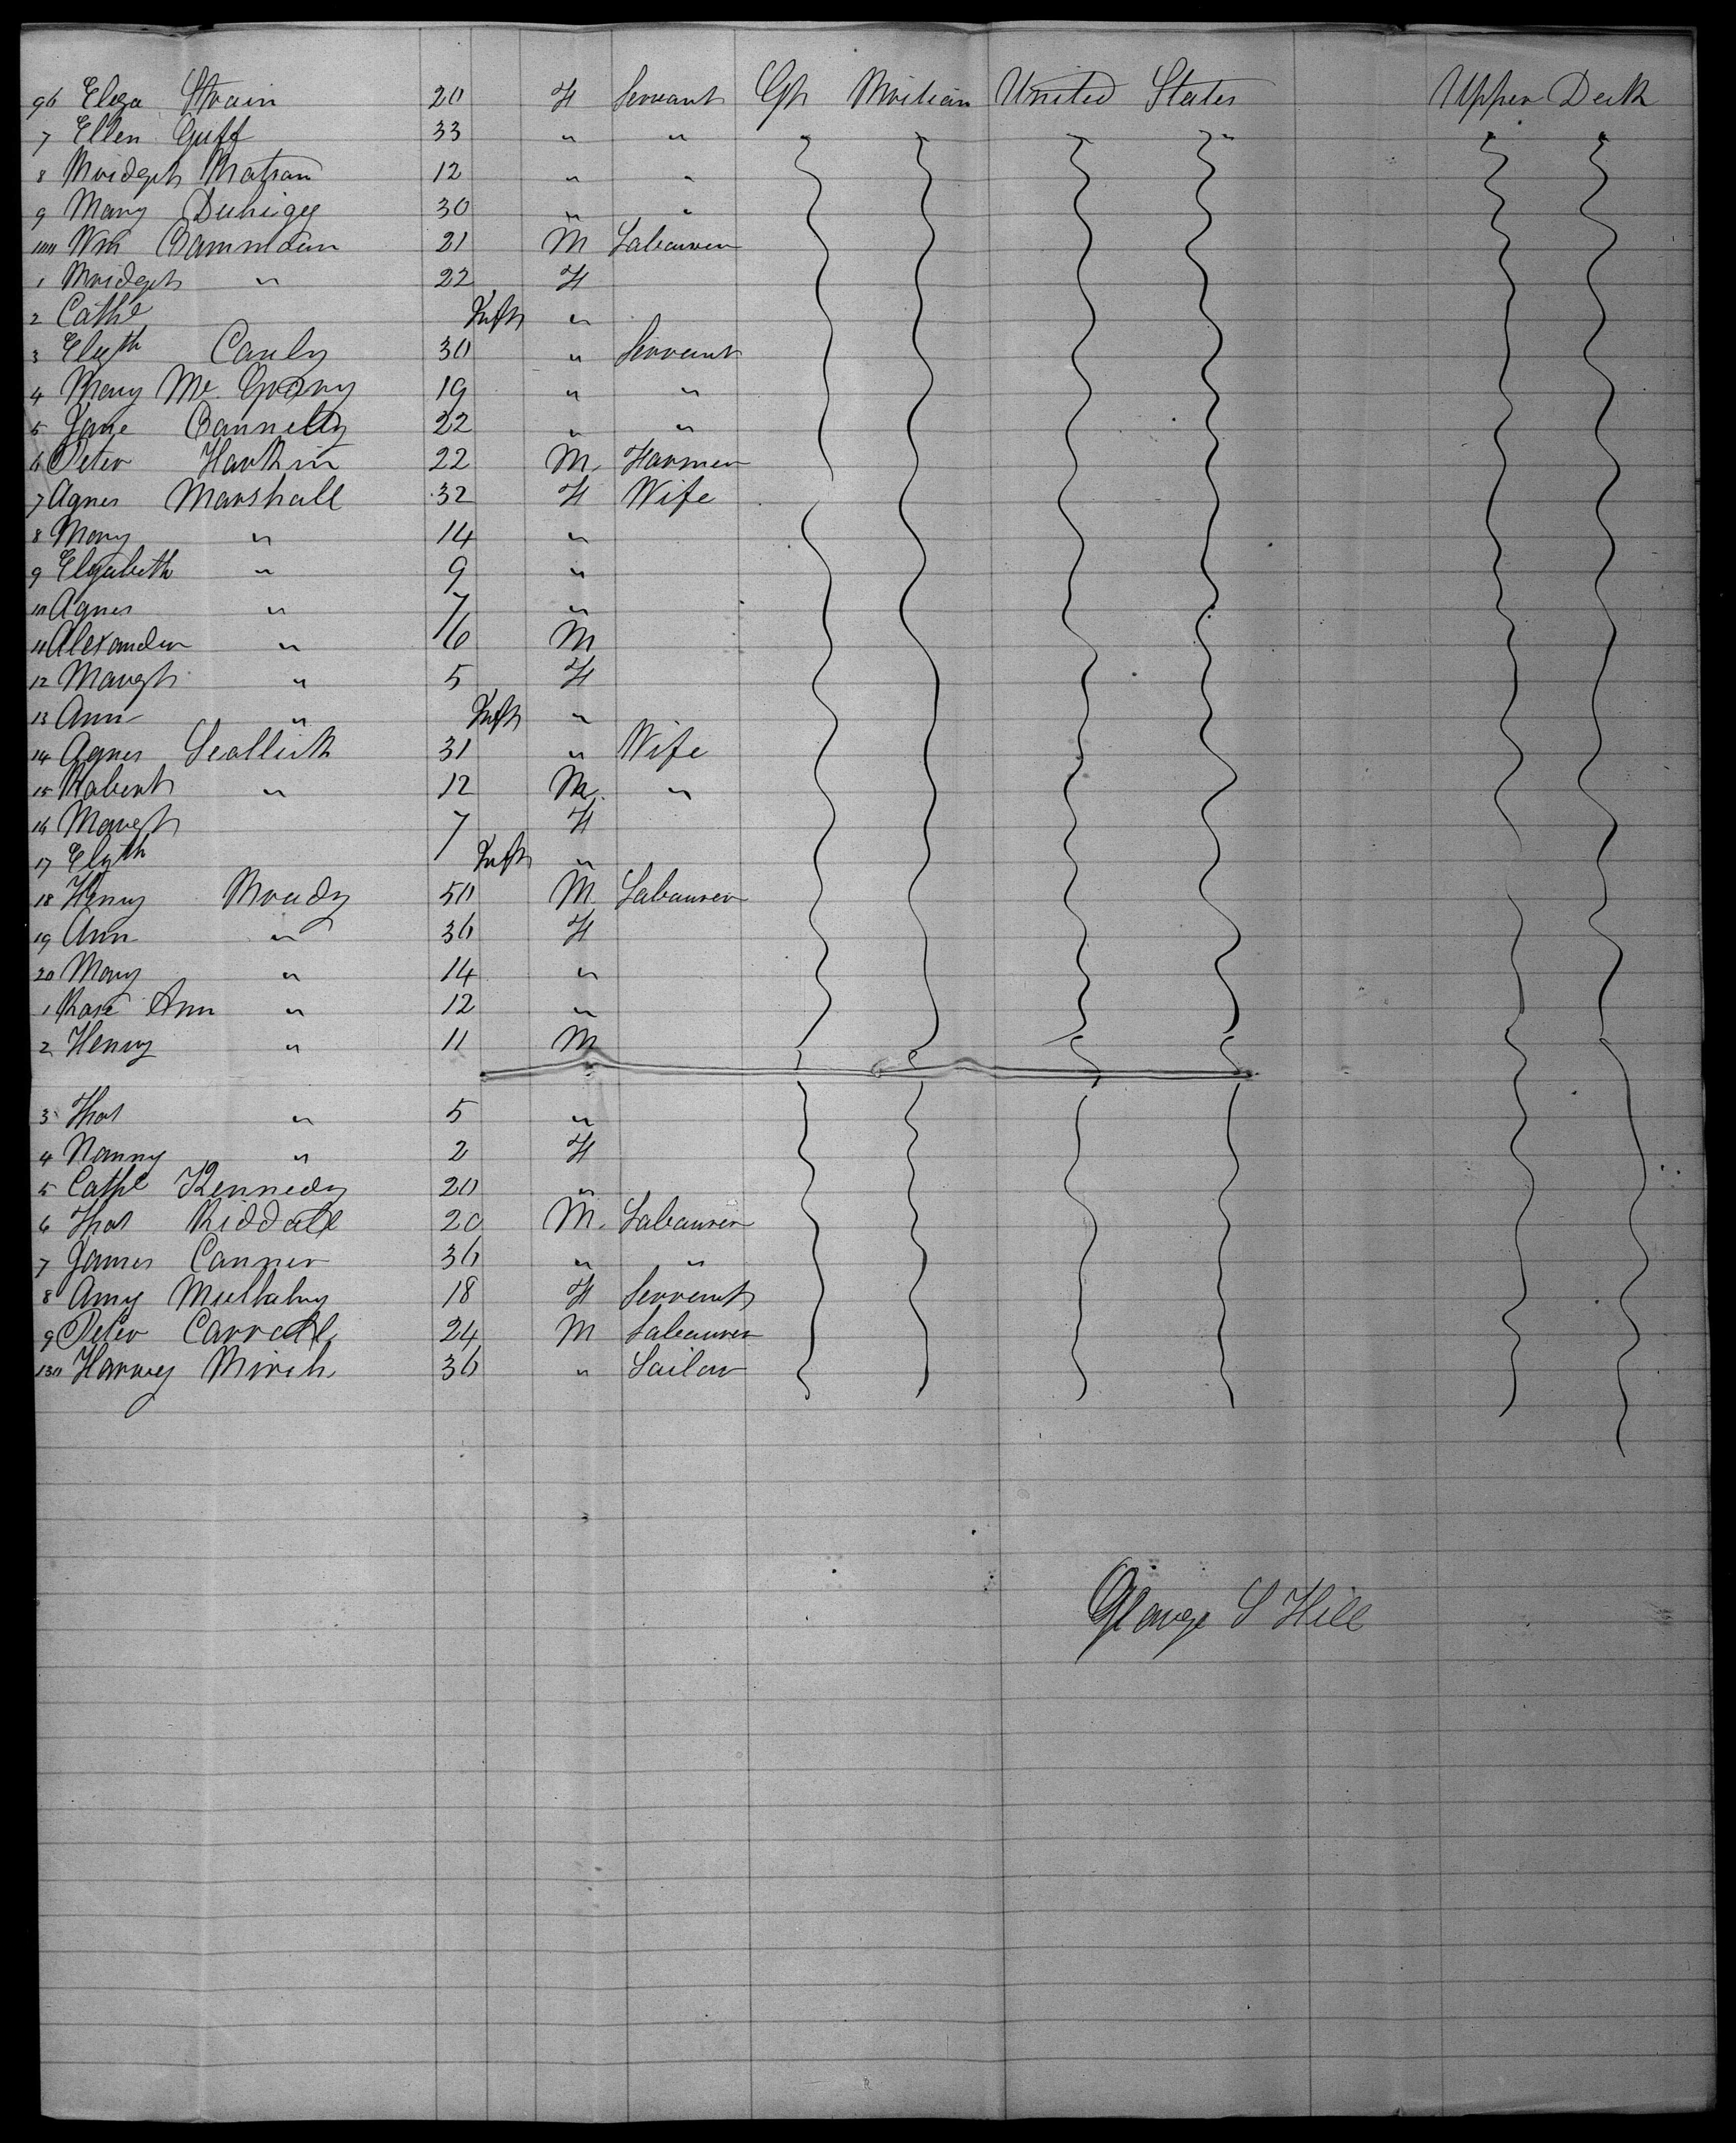 96 Eliza Strain 20 F Servant Gt Britian United States Upper Deck
7 Ellen Guff 33 " "
8 Bridget 12 " "
9 Mary Duhigg 30 " "
100 Wm 21 M Labourer
1 Bridget " 22 F
2 Cathe Inft "
3 Elizth 30 " Servant
4 Mary Mc 19 " "
5 Jane Connelly 22 " "
6 Peter Harkin 22 M. Farmer
7 Agnes Marshall 32 F Wife
8 Mary " 14 "
9 Elizabeth " 9 "
10 Agnes " 7 "
11 Alexander " 6 M
12 Margt " 5 F
13 Ann " Inft "
14 Agnes 31 " Wife
15 Robert " 12 M. "
16 Margt 7 F
17 Elizth Inft "
18 Henry Brady 50 M. Labourer
19 Ann " 36 F
20 Mary " 14 "
1 Rose Ann " 12 "
2 Henry " 11 M
3 Thos " 5 "
4 Nanny " 2 F
5 Cathe Kennedy 20 "
6 Thos Riddall 20 M. Labourer
7 James Conner 36 " "
8 Amy Mullahy 18 F Servant
9 Peter Carroll 24 M Labourer
130 Harvey Birch 36 " Sailor
George S Hill